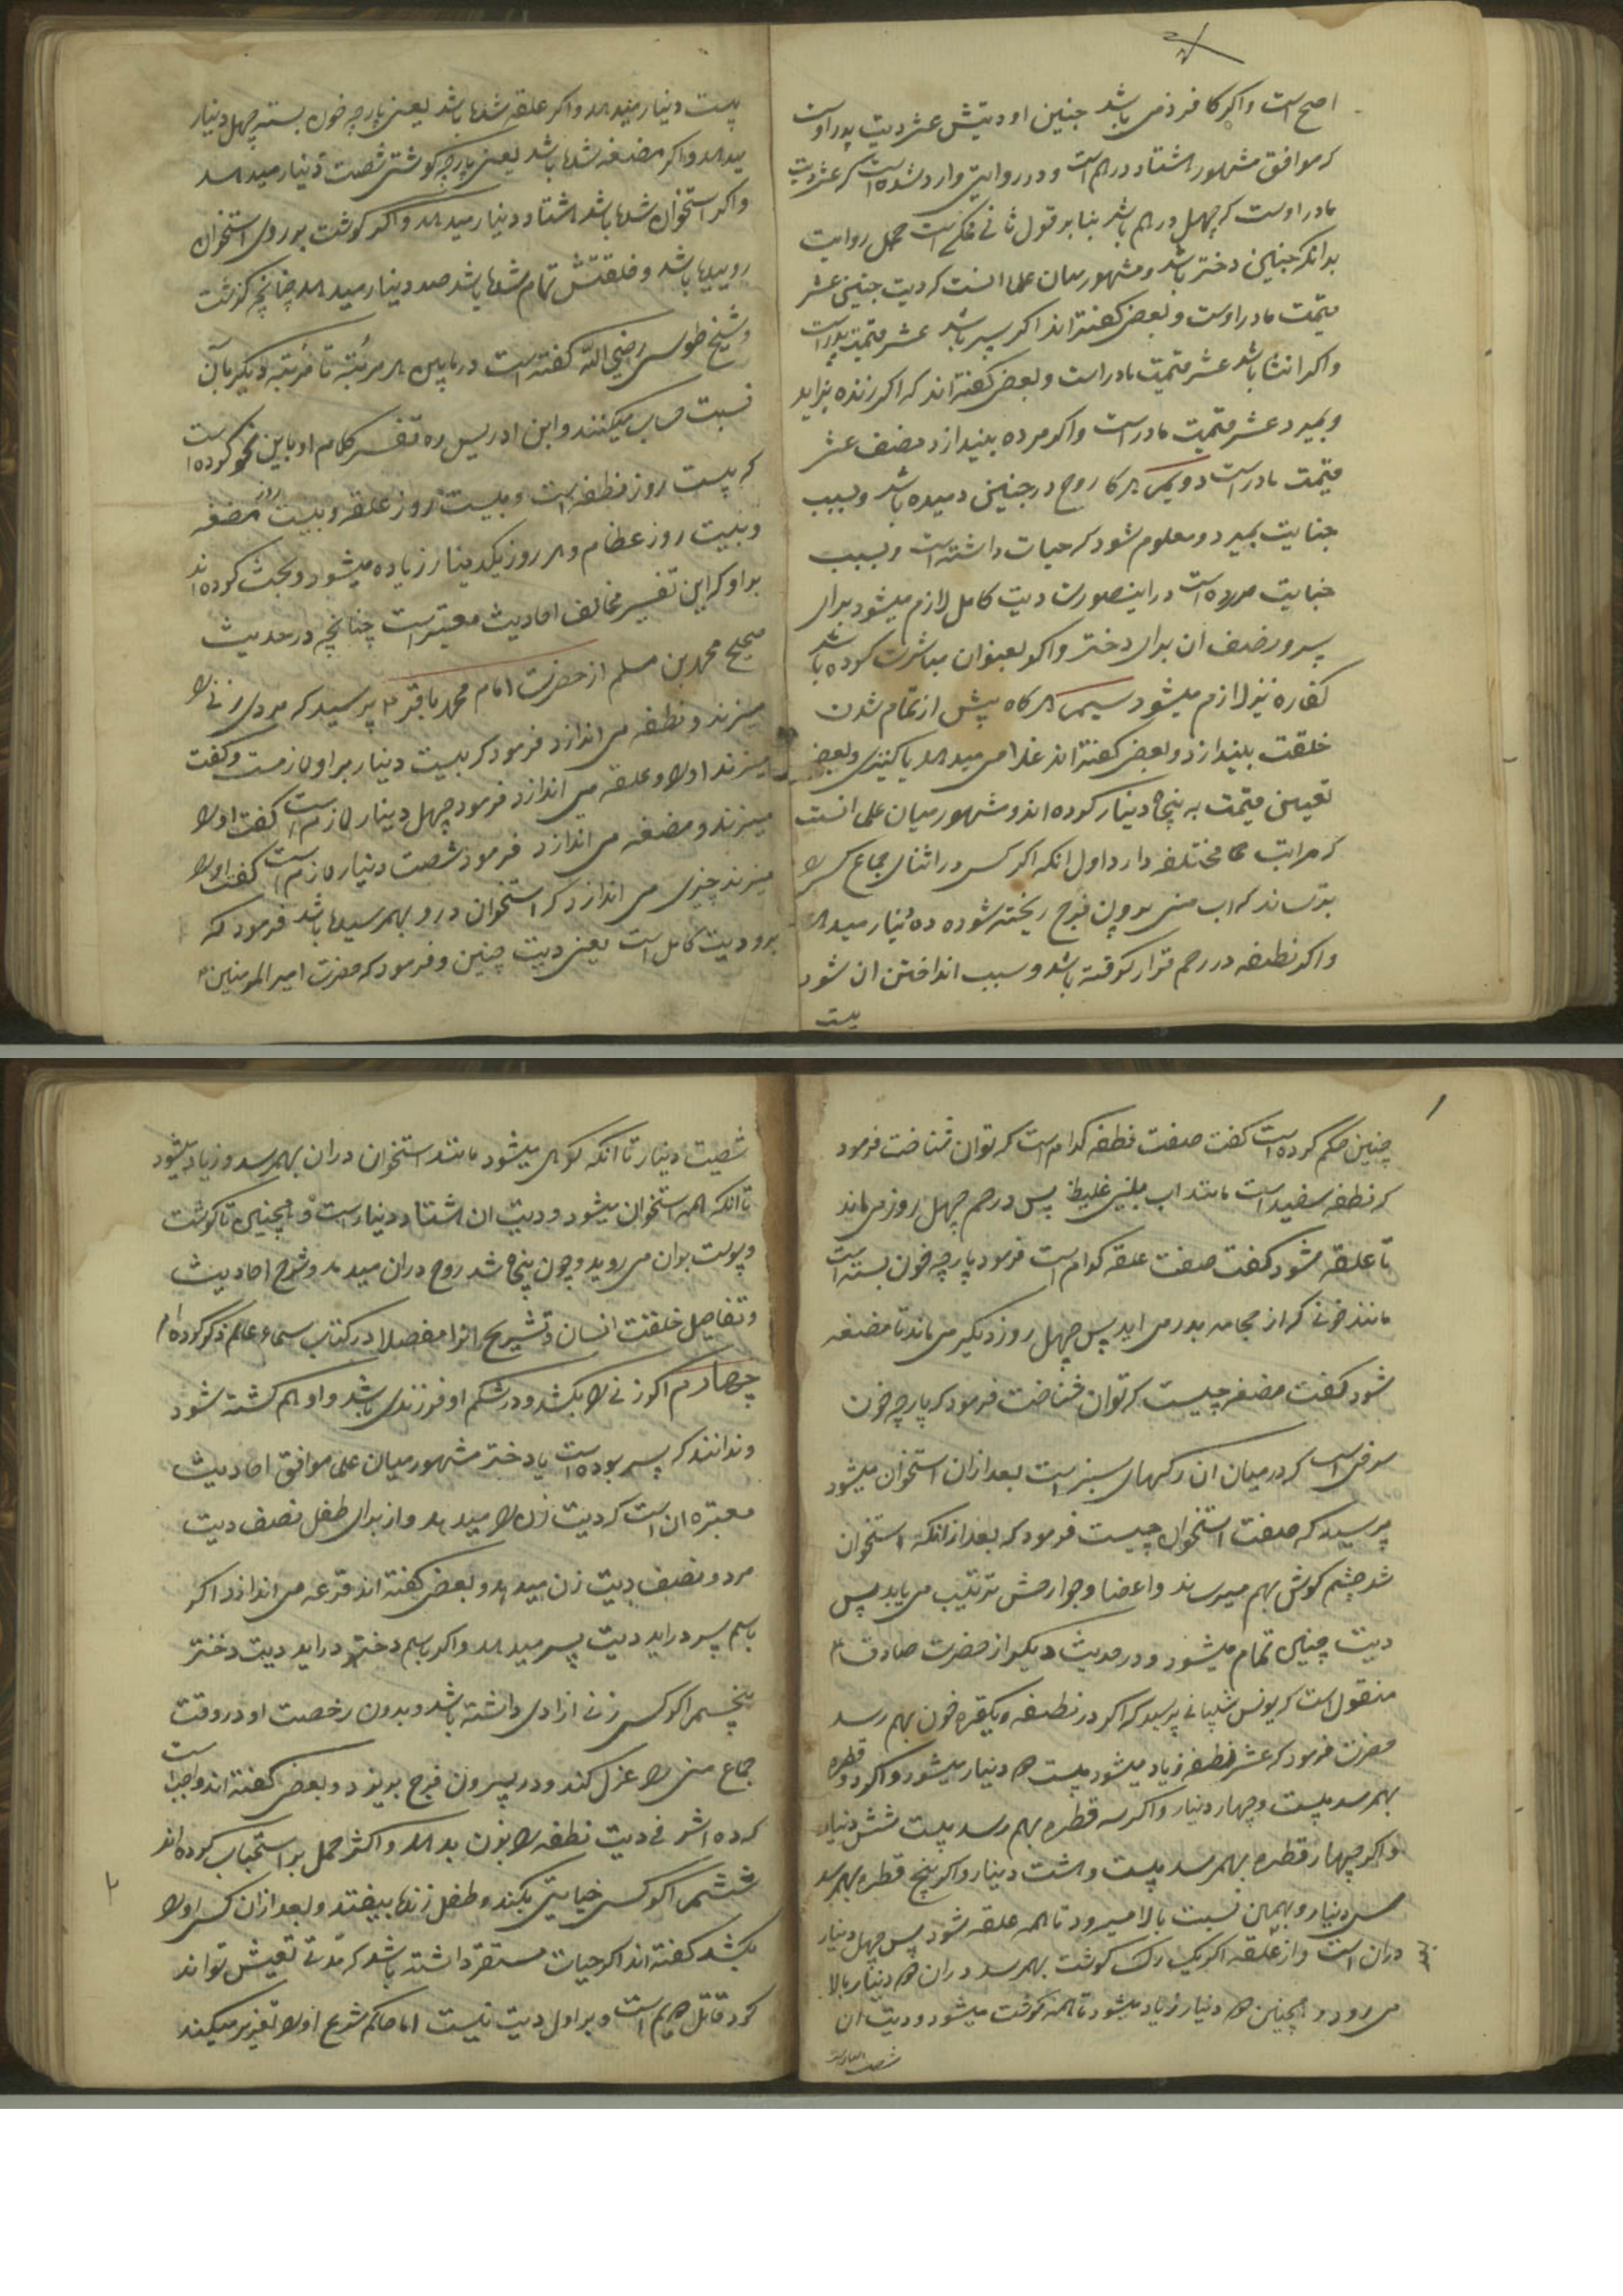 اصح است و اکر کافر ذمی باشد جنین او دیتش عشر دیت پدر اوست
که موافق مشهور هشتاد درهم است و در روایتی وارد شده است که عشر دیت
مادر اوست که چهل درهم باشد بنا بر قول ثانی ممکن است حمل روایت
بدانکه جنین دختر باشد و مشهور میان علما انست که دیت جنین عشر
قیمت مادر اوست و بعضی کفته اند اکر پسر باشد عشر قیمت پدر است
و اکر انثا باشد عشر قیمت مادر است و بعضی کفته اند که اکر زنده بزاید
و بمیرد عشر قیمت مادر است و اکر مرده بیندازد نصف عشر
قیمت مادر است دویم هرکاه روح در جنین دمیده باشد و بسبب
جنایت بمیرد و معلوم شود که حیات داشته است و بسبب
جنایت مرده است در اینصورت دیت کامل لازم میشود برای
پسر و نصف ان برای دختر و اکر بعنوان مباشرت کرده باشد
کفاره نیز لازم میشود سیم هرکاه پیش از تمام شدن
خلقت بیندازد و بعضی کفته اند غلامی میدهد یا کنیزی و بعضی
تعیین قیمت به پنجاه دینار کرده اند و مشهور میان علما انست
که مراتب مختلفه دارد اول انکه اکر کسی در اثنای جماع کسی را
بترساند که اب منی بیرون فرج ریخته شود ده دینار میدهد
و اکر نطفه در رحم قرار کرفته باشد و سبب انداختن ان شود
بیست
بیست دینار میدهد و اکر علقه شده باشد یعنی پارچه خون بسته چهل دینار
میدهد و اکر مضغه شده باشد یعنی پارچه کوشتی شصت دینار میدهد
و اکر استخوان شده باشد هشتاد دینار میدهد و اکر کوشت بر روی استخوان
روییده باشد و خلقتش تمام شده باشد صد دینار میدهد چنانچه کذشت
و شیخ طوسی رضی الله کفته است در مابین هر مرتبه تا مرتبه دیکر بآن
نسبت حساب میکنند و ابن ادریس ره تفسیر کلام او باین نحو کرده است
که بیست روز نطفه است و بیست روز علقه و بیست روز مضغه
و بیست روز عظام و هر روز یکدینار زیاده میشود و بحث کرده اند
بر او که این تفسیر مخالف احادیث معتبر است چنانچه در حدیث
صحیح محمد بن مسلم از حضرت امام محمد باقر ع پرسید که مردی زنی را
میزند و نطفه می اندازد فرمود که بیست دینار بر او لازمست و کفت
میزند او را و علقه می اندازد فرمود چهل دینار لازم است کفت او را
میزند و مضغه می اندازد فرمود شصت دینار لازم است کفت او را
میزند چیزی می اندازد که استخوان در و بهمرسیده باشد فرمود که
برو دیت کامل است یعنی دیت جنین و فرمود که حضرت امیر المومنین ع
چنین حکم کرده است کفت صفت نطفه کدام است که توان شناخت فرمود
که نطفه سفید است مانند اب بینی غلیظ پس در رحم چهل روز می ماند
تا علقه شود کفت صفت علقه کدام است فرمود پارچه خون بسته است
مانند خونی که از حجامه بدر می اید پس چهل روز دیکر می ماند تا مضغه
شود کفت مضغه چیست که توان شناخت فرمود که پارچه خون
سرخی است که در میان ان رکهای سبز است بعد از ان استخوان میشود
پرسید که صفت استخوان چیست فرمود که بعد از انکه استخوان
شد چشم کوش بهم میرساند و اعضا و جوارحش ترتیب می یابد پس
دیت جنین تمام میشود و در حدیث دیکر از حضرت صادق ع
منقول است که یونس شیبانی پرسید که اکر در نطفه و یکقطره خون بهم رسد
حضرت فرمود که عشر نطفه زیاد میشود بیست دو دینار میشود و اکر دو قطره
بهمرسد بیست و چهار دینار و اکر سه قطره بهم رسد بیست شش دینار
و اکر چهار قطره بهمرسد بیست و هشت دینار و اکر پنج قطره بهمرسد
سی دینار و بهمین نسبت بالا میرود تا همه علقه شود پس چهل دینار
دران است و از علقه اکر یک رک کوشت بهمرسد دران دو دینار بالا
می رود و همچنین دو دینار زیاد میشود تا همه کوشت میشود و دیت ان
شصت دینار است
شصت دینار تا آنکه کرهی میشود مانند استخوان دران بهمرسد و زیاد میشود
تا انکه همه استخوان میشود و دیت ان هشتاد دینار است و همچنین تا کوشت
و پوست بران می روید و چون پنج ماه شد روح دران میدمد و شرح احادیث
و تفاصیل خلقت انسان و تشریح انرا مفصلا در کتاب سماء و عالم ذکر کرده ام
چهارم اکر زنی را بکشد و در شکم او فرزندی باشد و او هم کشته شود
و ندانند که پسر بوده است یا دختر مشهور میان علما موافق احادیث
معتبره ان است که دیت زن را میدهد و از برای طفل نصف دیت
مرد و نصف دیت زن میدهد و بعضی کفته اند قرعه می اندازد اکر
باسم پسر دراید دیت پسر میدهد و اکر باسم دختر دراید دیت دختر
پنجم اکر کسی زنی ازادی داشته باشد و بدون رخصت او در وقت
جماع منی را عزل کند و در بیرون فرج بریزد و بعضی کفته اند واجب است
که ده اشرفی دیت نطفه را بزن بدهد و اکثر حمل بر استحباب کرده اند
ششم اکر کسی جنایتی بکند و طفل زنده بیفتد و بعد از ان کسی او را
بکشد کفته اند اکر حیات مستقره داشته باشد که مدتی تعیش تواند
کرد قاتل دویم است و بر اول دیت نیست اما حاکم شرع او را تعزیر میکند